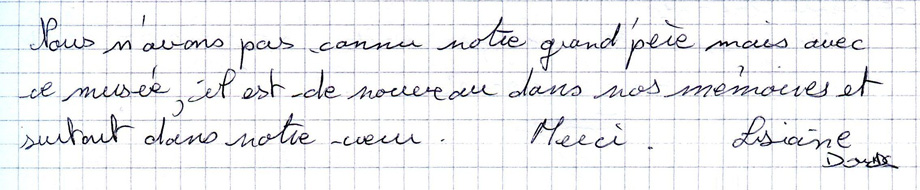 Nous n'avons pas connu notre grand'père mais avec
ce musée, il est de nouveau dans nos mémoires et
surtout dans notre cœur. Merci. Lisiane